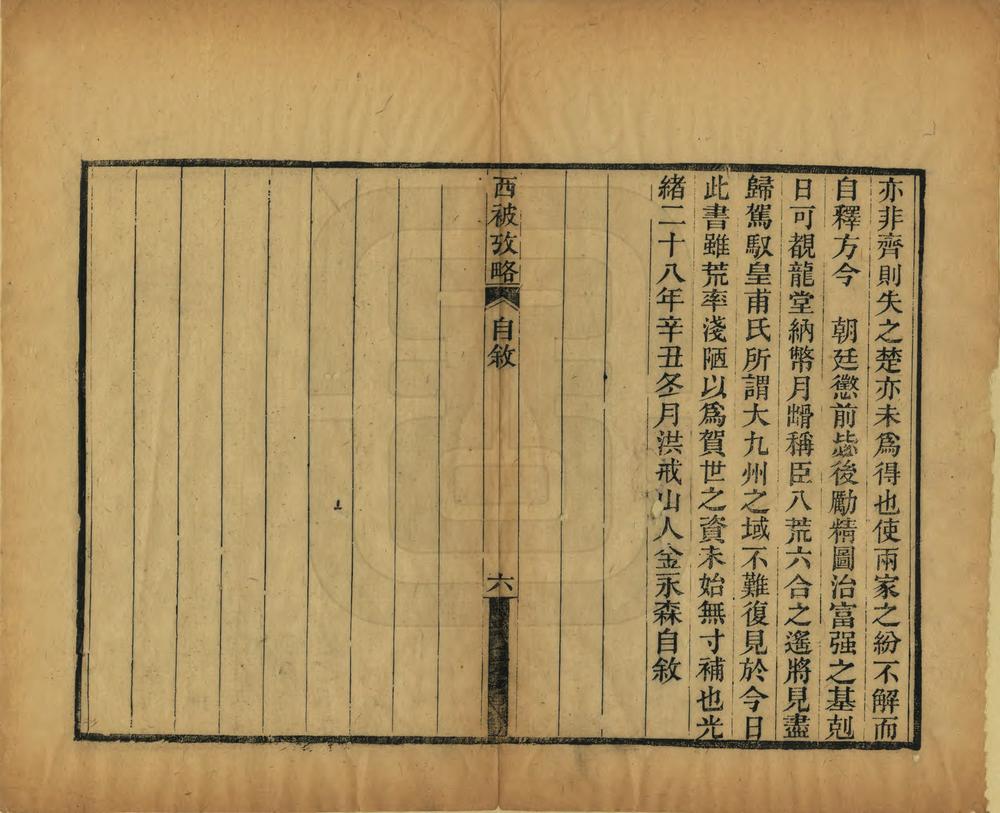 亦非齊則失之楚亦未為得也使兩家之紛不解而
自釋方今　朝廷懲前毖後勵精圖治富强之基剋
日可覩龍堂納幣月𡺚稱臣八荒六合之遙將見盡
歸駕馭皇甫氏所謂大九州之域不難復見於今日
此書雖荒率淺陋以為賀世之資未始無寸補也光
緒二十八年辛丑冬月洪戒山人金永森自敘
西被攷略
自敘
六